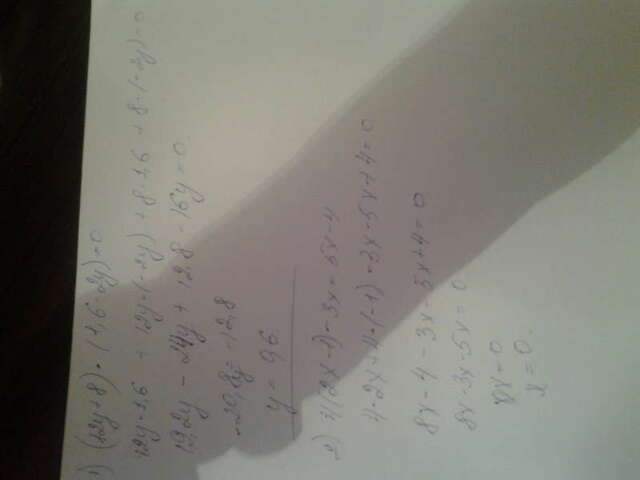 1) (12y+8)·(1,6-2y)=0
12y·1,6 + 12y·(-2y) + 8·1,6 + 8·(-2y)=0
19,2y - 24y + 12,8 - 16y = 0
-20,8y = -12,8
y = 0,6
2) 4(2x-1)-3x=5x-4
4·2x+4·(-1)-3x-5x+4=0
8x-4-3x-5x+4=0
8x-3x-5x=0
x=0.